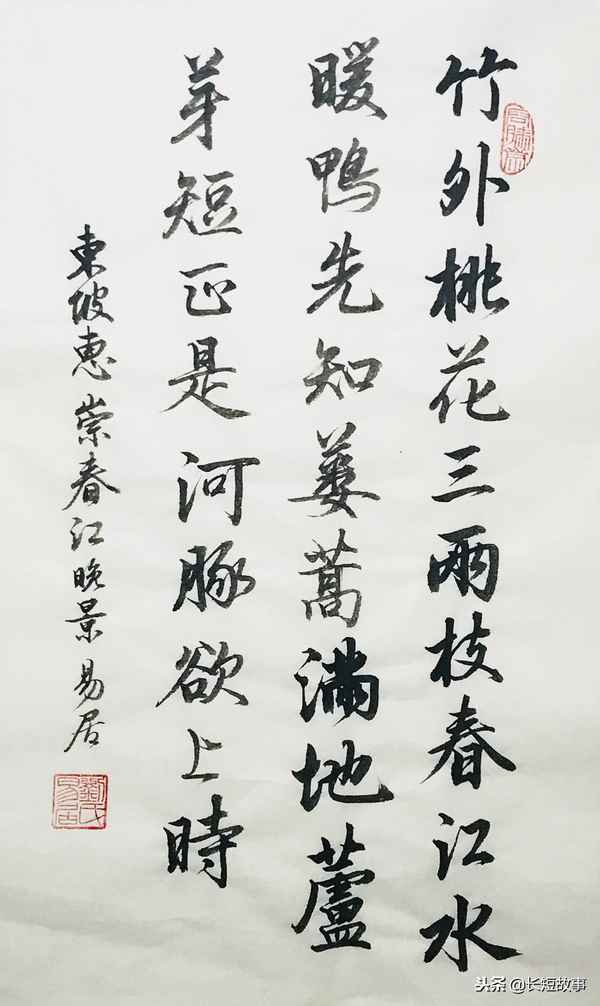 竹外桃花三兩枝春江水
暖鴨先知蔞蒿滿地蘆
芽短正是河豚欲上時
東坡惠崇春江晚景易居
劉氏易居
头条 @长短故事